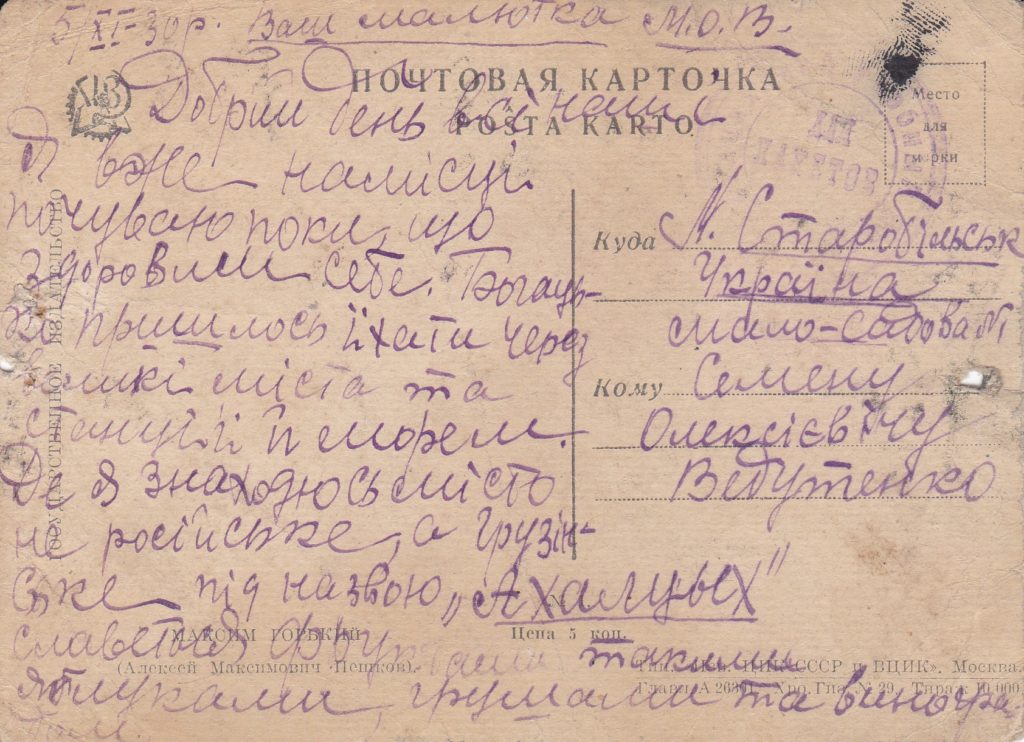 5/XI-30р. Ваш малютка М.О.В.
ПОЧТОВАЯ КАРТОЧКА
POŜTA KARTO
Место
для
марки
Добрий день всі наші
Я вже намісці
почуваю поки, що
здоровим себе. Богаць-
ко пришлось їхати через
великі міста та
станції й морем.
Де я знаходюсь місто
не російське, а грузін-
ське під назвою „Ахалцых"
славеться фруктами такими
яблуками, грушами та виногра-
дом.
Куда М. Старобільськ
Україна
мало-садова №1
Кому Семену
Олексієвічу
ГОСУДАРСТВЕННОЕ ИЗДАТЕЛЬСТВО
МАКСИМ ГОРЬКИЙ
(Алексей Максимович Пешков).
Цена 5 коп.
ЦИК СССР и ВЦИК». Москва.
Главл. А Хро. Гиз № 29. Тираж 10.000